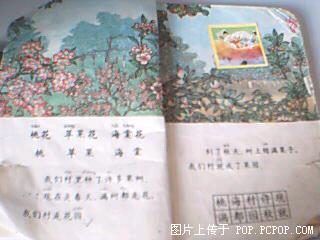 桃花 苹果花 海棠花
桃 苹果 海棠
我们村里种了许多果树。
现在是春天，满村都是花。
我们村是花园。
到了秋天，树上结满果子。
我们村就成了果园。
桃 海 村 许 现
满 都 园 秋 就
图片上传于 POP.PCPOP.COM